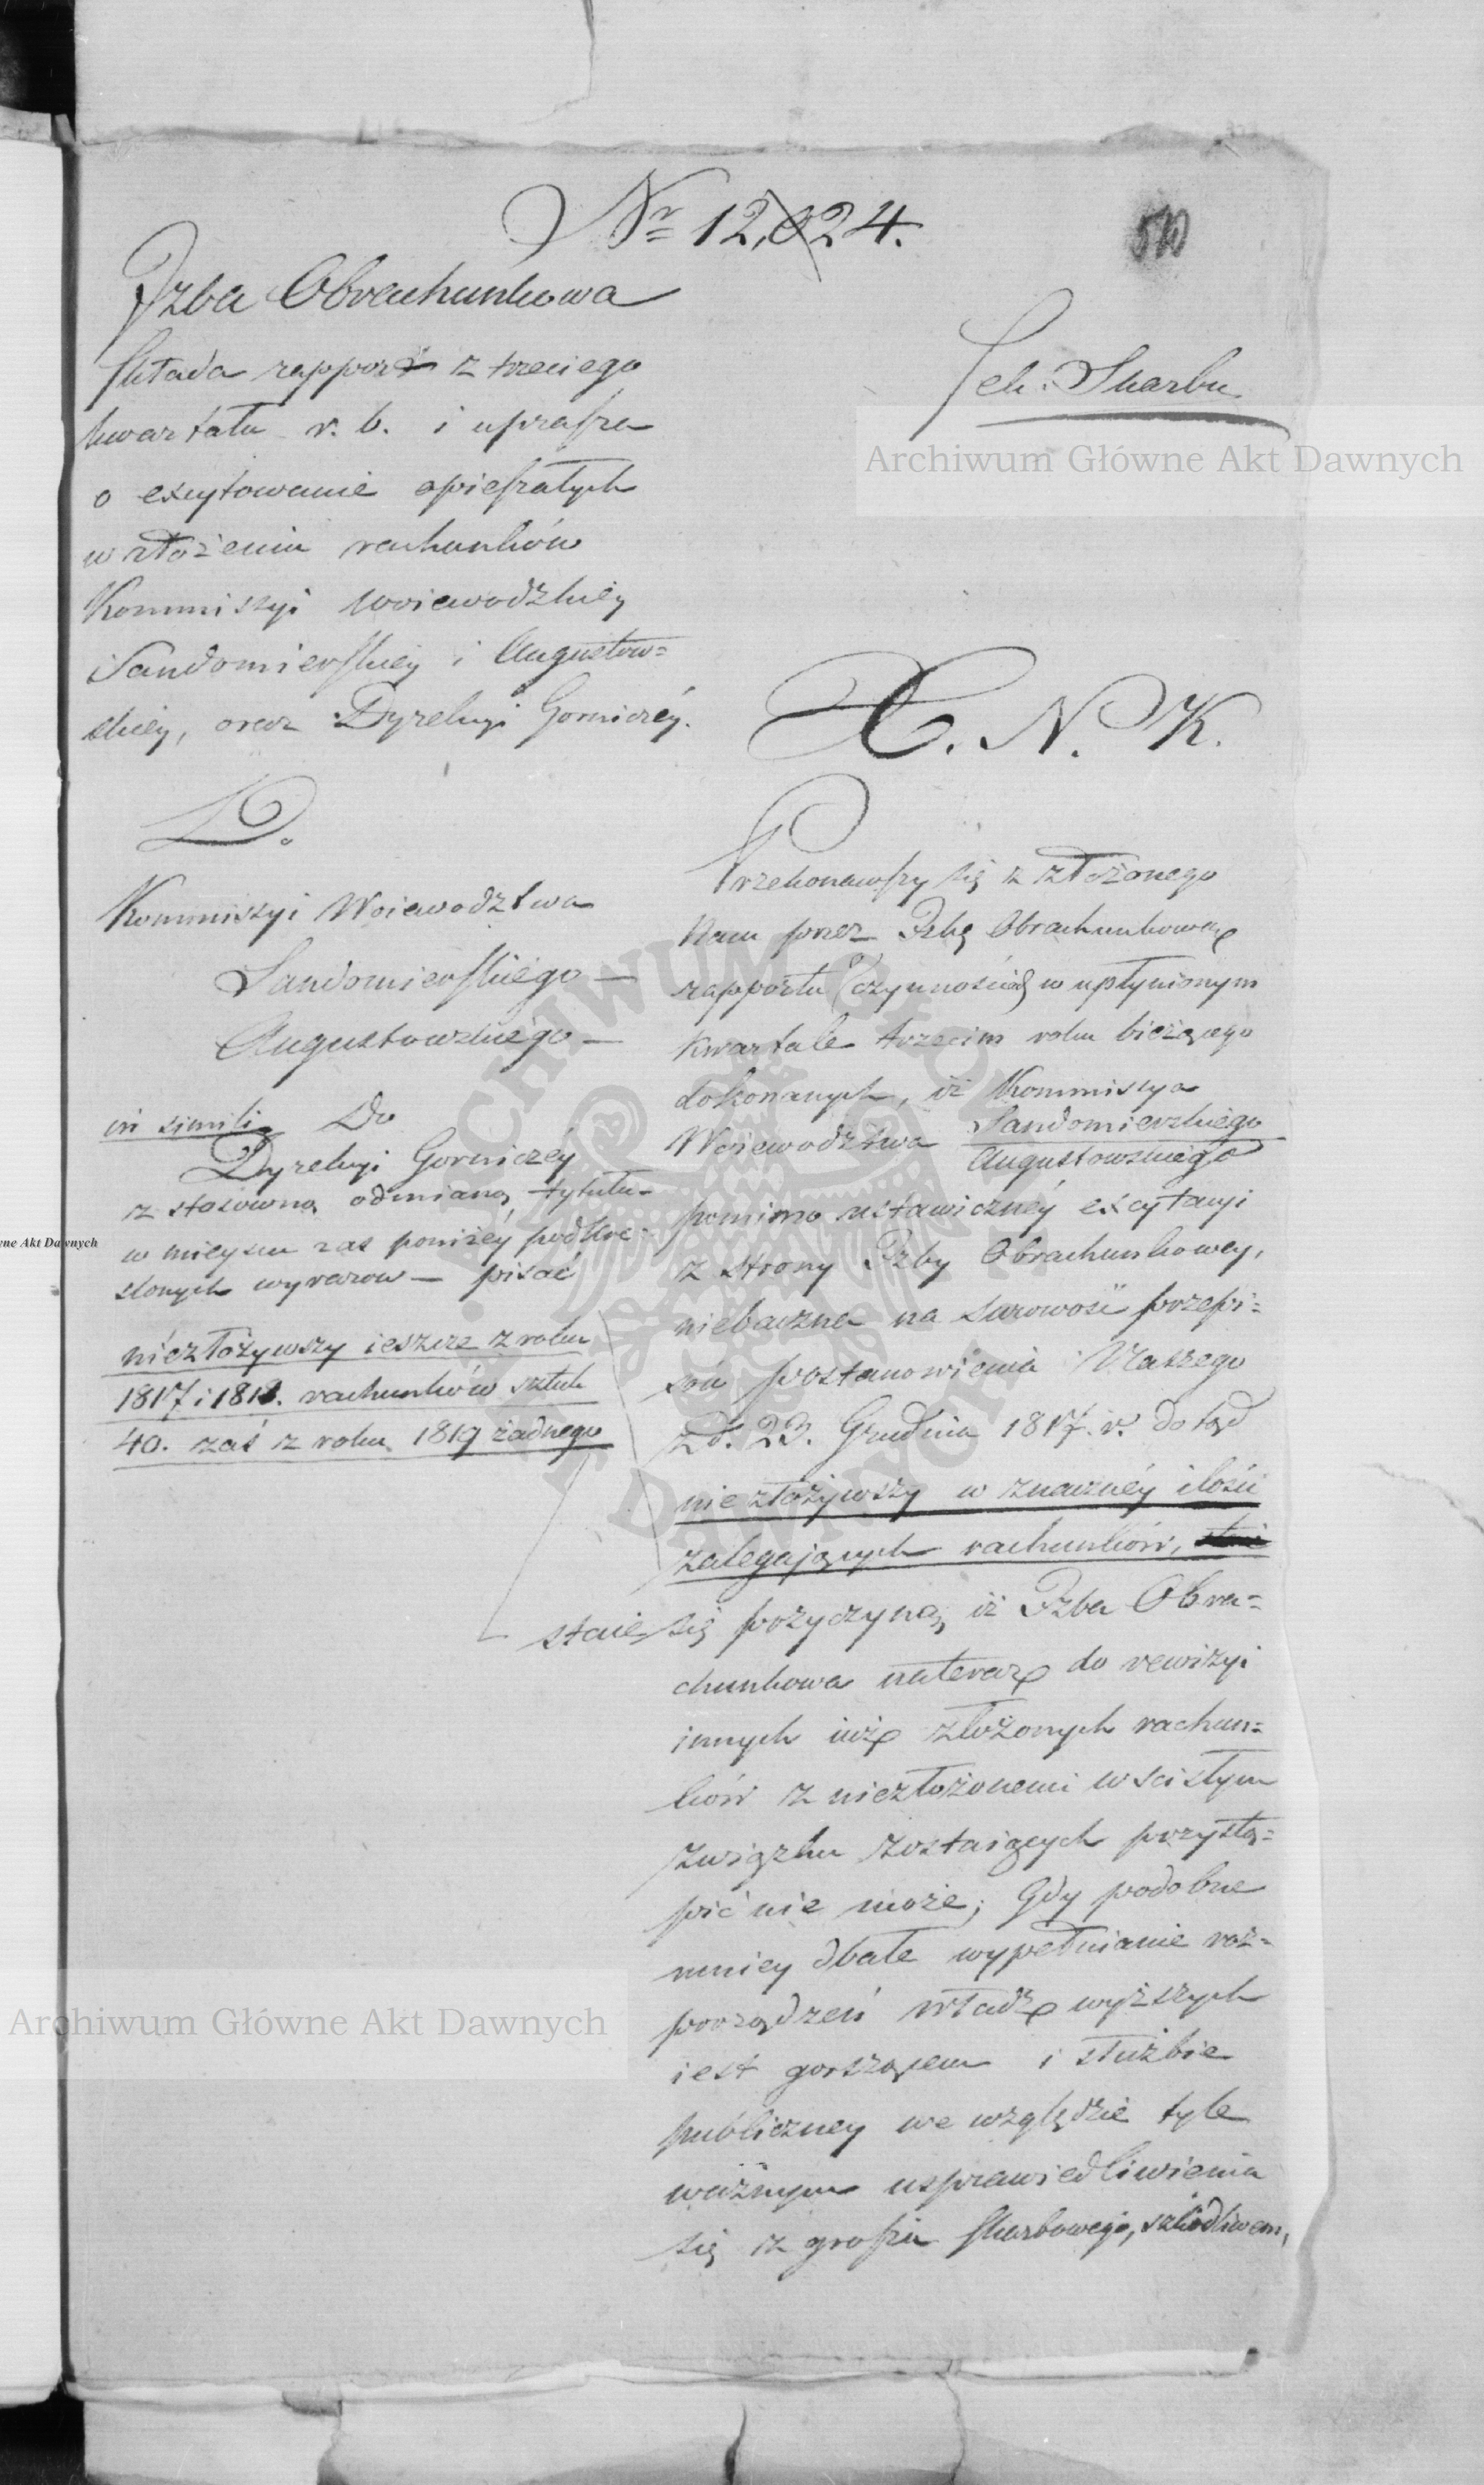 Nr 12,024.
510
Izba Obrachunkowa
składa rapport z trzeciego
kwartału r. b. i uprasza
o excytowanie opieszałych
w złożeniu rachunków
Kommissyi Woiewodzkiéy
Sandomierskiéy i Augustow=
skiéy, oraz Dyrekcyi Gorniczéy.
Sek: Skarbu
X. N. K.
D.
Kommissyi Woiewodztwa
Sandomierskiego —
Augustowskiego —
in simili Do
Dyrekcyi Gorniczéy
z stosowną odmianą tytułu
w mieyscu zaś poniżéy podkre=
slonych wyrazow — pisać
niezłożywszy ieszcze z roku
1817 i 1818. rachunków sztuk
40. zaś z roku 1819 żadnego
Przekonawszy się z złożonego
Nam przez Izbę Obrachunkową
rapportu czynności w upłynionym
kwartale trzecim roku bieżącego
dokonanych, iż Kommissya
Woiewodztwa Sandomierskiego
Augustowskiego
pomimo ustawicznéy excytacyi
z strony Izby Obrachunkowey,
niebaczna na surowość przepi=
sów postanowienia Naszego
z d. 23. Grudnia 1817. r. dotąd
niezłożywszy w znacznéy ilości
zalegających rachunków,
staie się przyczyną, iż Izba Obra=
chunkowa nateraz do rewizyi
innych iuż złożonych rachun=
ków z niezłożonemi w scisłym
związku zostaiących przystą=
pić nie może; Gdy podobne
mniey dbałe wypełnianie roz=
porządzeń władz wyższych
iest gorszącem i służbie
publiczney we względzie tyle
ważnym usprawiedliwienia
się z grosza skarbowego, szkodliwem,
Archiwum Główne Akt Dawnych
wne Akt Dawnych
Archiwum Główne Akt Dawnych